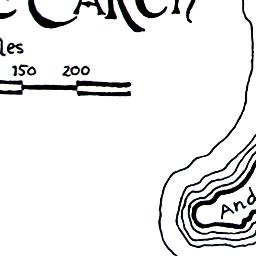 Earth
les
150 200
And